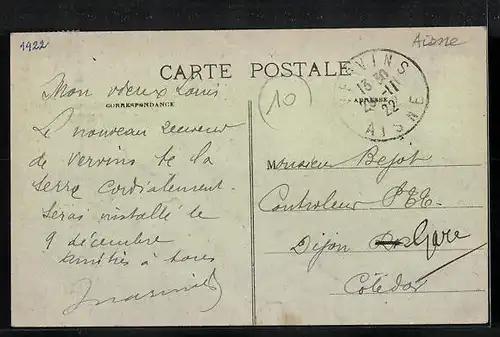 1922
Aisne
CARTE POSTALE
CORRESPONDANCE
ADRESSE
10
VERVINS
13 30
-11
22
AISNE
Mon vieux Louis
Le nouveau receveur
de Vervins te la
serre cordialement.
Serai installé le
9 décembre
amitiés à tous
Monsieur Bejot
Controleur PTT.
Dijon Gare
Côte d'or